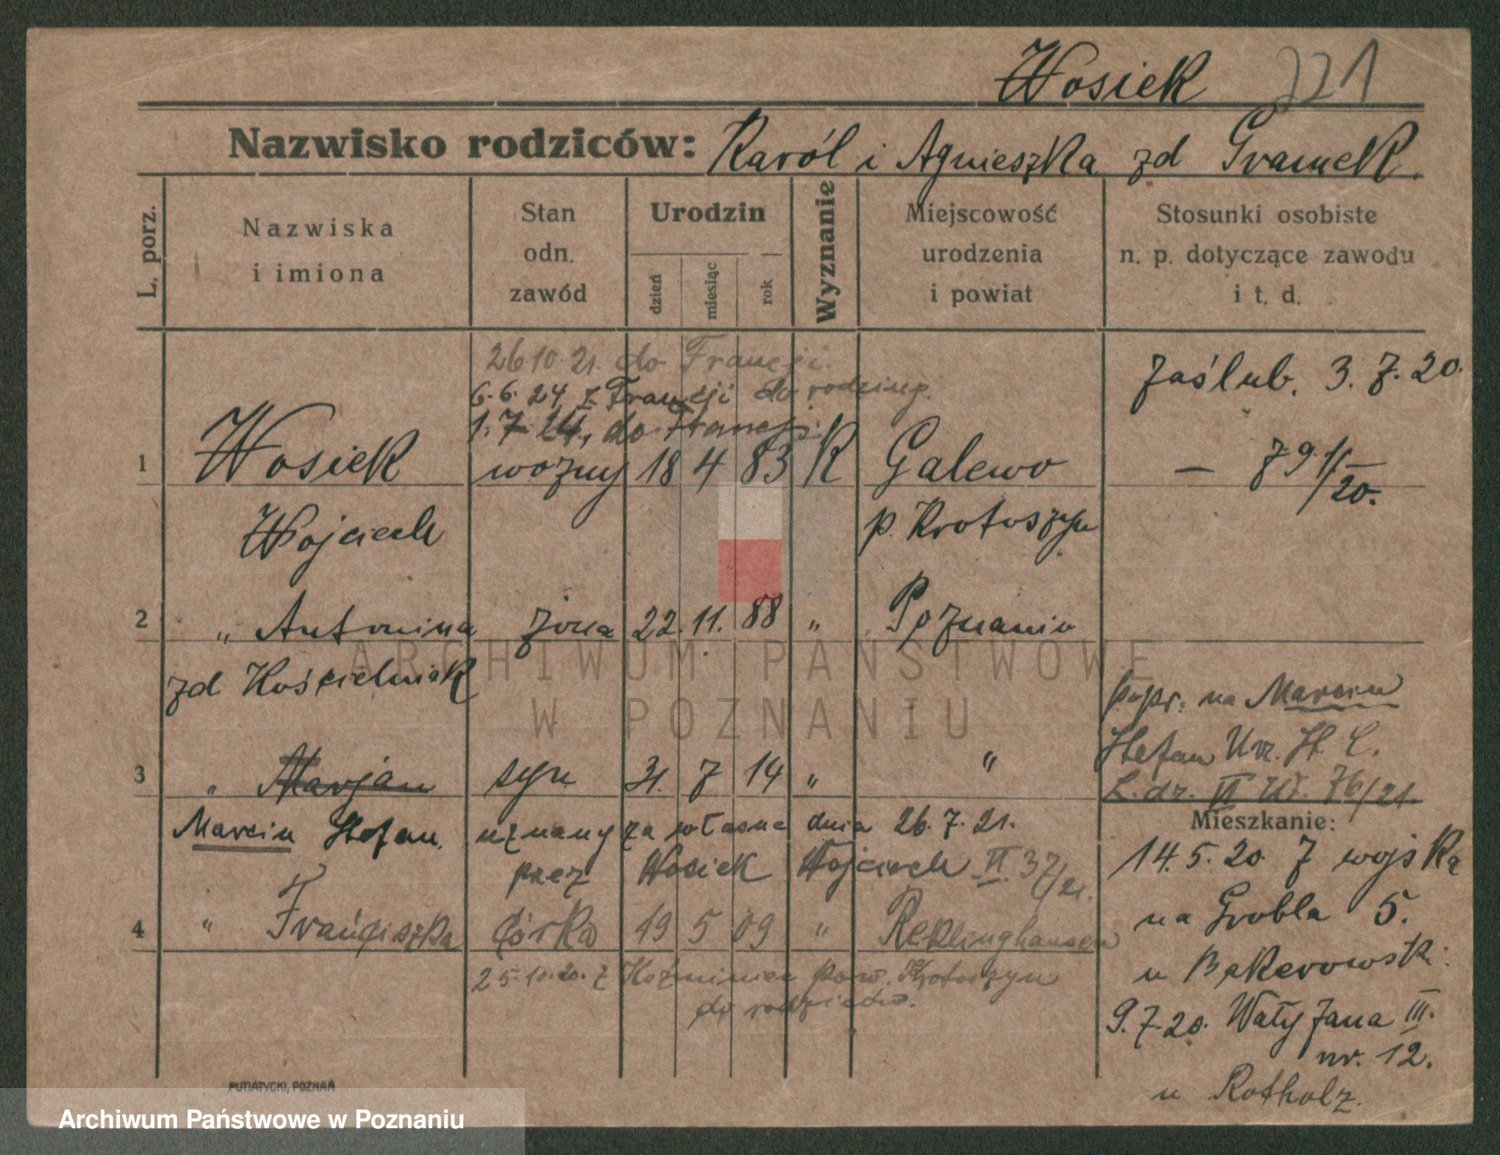 Wosiek 221
Nazwisko rodziców: Karól i Agnieszka zd Gramek.
L. porz.
Nazwiska i imiona
Stan odn. zawód
Urodzin
dzień
miesiąc
rok
Wyznanie
Miejscowość urodzenia i powiat
Stosunki osobiste n. p. dotyczące zawodu i t. d.
26 10. 21. do Francji.
6.6. 24 z Francji do rodziny.
1.7. 24, do Francji.
zaślub. 3. 7. 20.
1 Wosiek woźny 18 4 83 R Galewo — 79 1/20.
Wojciech p. Krotoszyn
2 " Antonina żona 22. 11. 88 " Poznaniu
zd Kościelniak
popr. na Marcin
Stefan Urz. St. C.
L. dz. II W. 76/21
3 " Marjan syn 31. 7 14 " "
Marcin Stefan. uznany za własne dnia 26. 7. 21.
przez Wosiek Wojciech II. 37/21.
4 " Franciszka córka 19 5 09 " Reklinghausen
25.10.20. z Koźmińca pow. Krotoszyn
do rodziców.
Mieszkanie:
14. 5. 20 z wojska
na Grobla 5.
u Bąkerowski.
9. 7. 20. Wały Jana III.
nr. 12.
u Rotholz.
PUTIATYCKI, POZNAŃ
ARCHIWUM PAŃSTWOWE
W POZNANIU
Archiwum Państwowe w Poznaniu